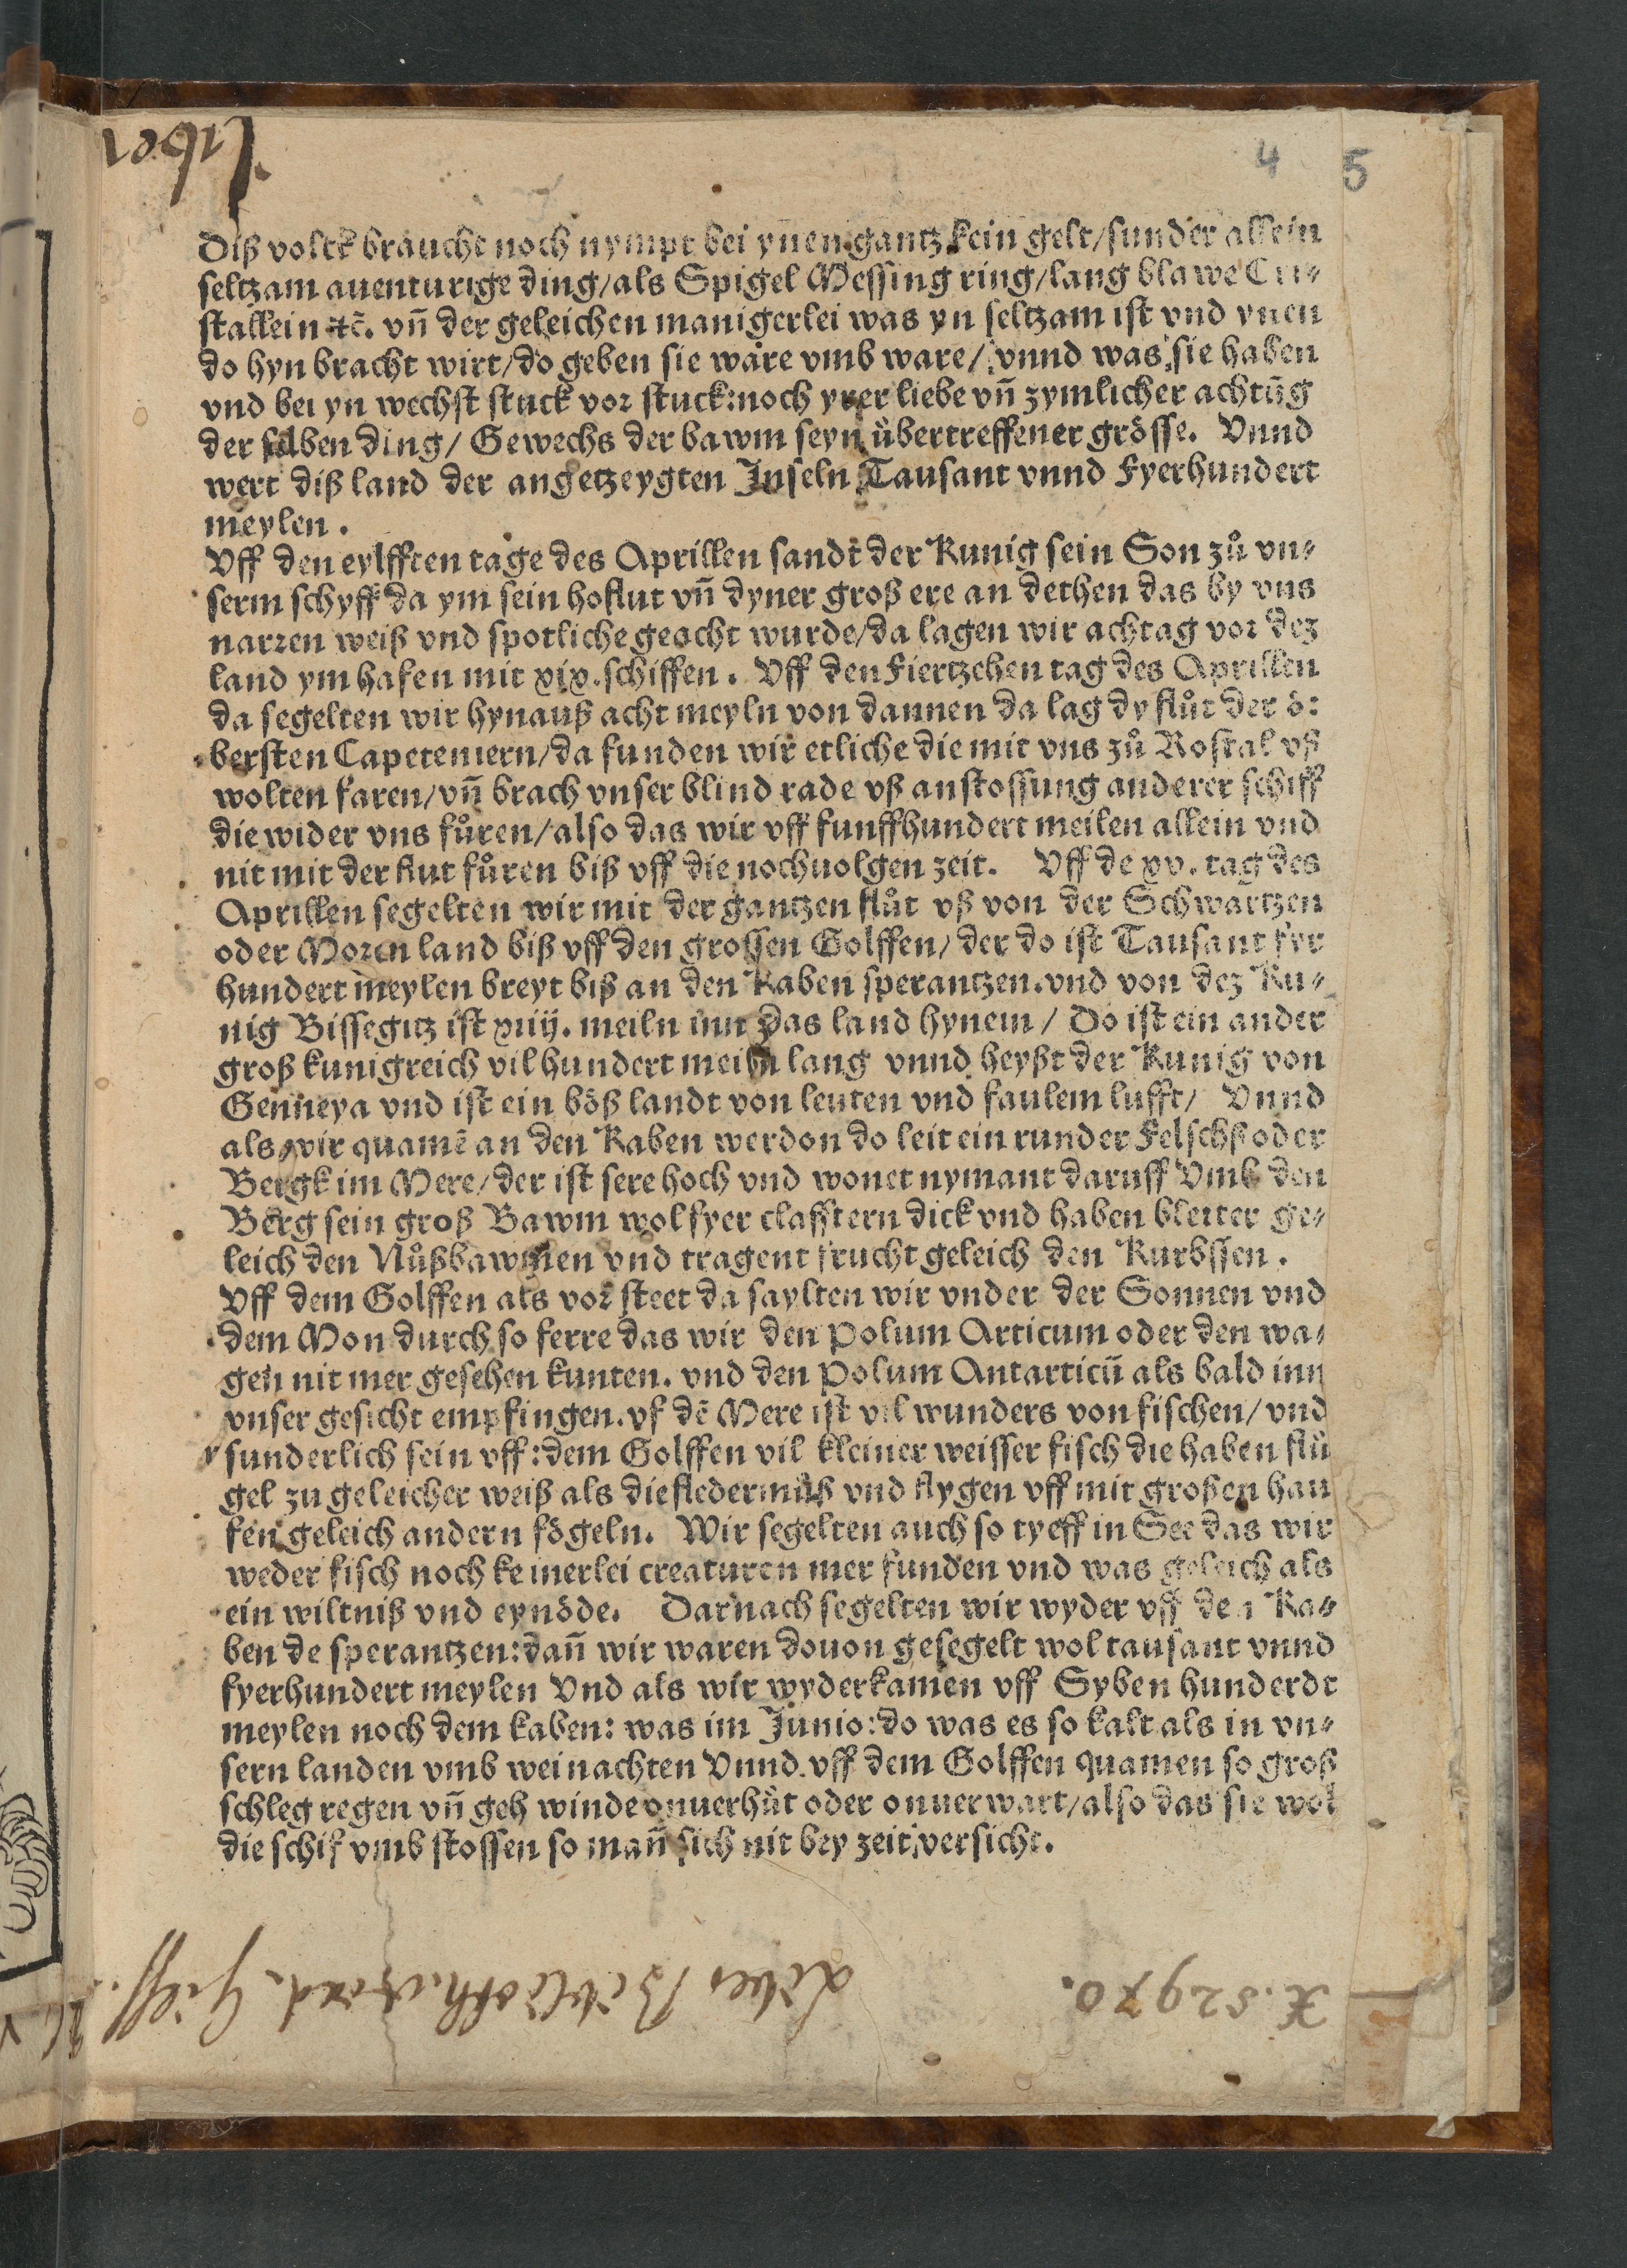 4 5
Diß volck braucht noch nympt bei ynen gantz kein gelt/sunder allein
seltzam auenturige ding/als Spigel Messing ring/lang blawe Cri⸗
stallein ⁊c̃. vñ der geleichen manigerlei was yn seltzam ist vnd ynen
do hyn bracht wirt/do geben sie ware vmb ware/ vnnd was sie haben
vnd bei yn wechst stuck vor stuck:noch yrer liebe vñ zymlicher achtũg
der selben ding/ Gewechs der bawm seyn übertreffener grösse. Vnnd
wert diß land der angetzeygten Inseln Tausant vnnd Fyerhundert
meylen.
Vff den eylfften tage des Aprillen sandt der Kunig sein Son zů vn⸗
serm schyff da ym sein hoflut vñ dyner groß ere an dethen das by vns
narren weiß vnd spotliche geacht wurde/da lagen wir achtag vor dez
land ym hafen mit xix.schiffen. Vff den Fiertzehen tag des Aprillen
da segelten wir hynauß acht meyln von dannen da lag dy flůt der ö:
bersten Capeteniern/da funden wir etliche die mit vns zů Rostal vß
wolten faren/vñ brach vnser blind rade vß anstossung anderer schiff
die wider vns fůren/also das wir vff funffhundert meilen allein vnd
nit mit der flut fůren biß vff die nochuolgen zeit. Vff de xv. tag des
Aprillen segelten wir mit der gantzen flůt vß von der Schwartzen
oder Moren land biß vff den grossen Golffen/ der do ist Tausant fyr
hundert meylen breyt biß an den Kaben sperantzen.vnd von dez Ku⸗
nig Bissegitz ist xiiij. meiln inn das land hynein/ Do ist ein ander
groß kunigreich vil hundert meiln lang vnnd heyßt der Kunig von
Genneya vnd ist ein böß landt von leuten vnd faulem lufft/ Vnnd
als wir quamẽ an den Kaben werdon do leit ein runder Felschß oder
Bergk im Mere/der ist sere hoch vnd wonet nymant daruff Vmb den
Berg sein groß Bawm wol fyer clafftern dick vnd haben bletter ge⸗
leich den Nůßbawmen vnd tragent frucht geleich den Kurbssen.
Vff dem Golffen als vor steet da saylten wir vnder der Sonnen vnd
dem Mon durch so ferre das wir den Polum Articum oder den wa⸗
gen nit mer gesehen kunten. vnd den Polum Antarticũ als bald inn
vnser gesicht empfingen.vf dẽ Mere ist vil wunders von fischen/ vnd
sunderlich sein vff:dem Golffen vil kleiner weisser fisch die haben flü
gel zu geleicher weiß als die fledermüß vnd flygen vff mit großen hau
fen geleich andern fögeln. Wir segelten auch so tyeff in See das wir
weder fisch noch keinerlei creaturen mer funden vnd was geleich als
ein wiltniß vnd eynöde. Darnach segelten wir wyder vff den Ka⸗
ben de sperantzen:dañ wir waren douon gesegelt wol tausant vnnd
fyerhundert meylen Vnd als wir wyderkamen vff Syben hunderdt
meylen noch dem kaben: was im Junio:do was es so kalt als in vn⸗
sern landen vmb weinachten Vnnd vff dem Golffen quamen so groß
schleg regen vñ geh winde onuerhüt oder onuerwart/also das sie wol
die schif vmb stossen so mañ sich nit bey zeit versicht.
X. 52970.